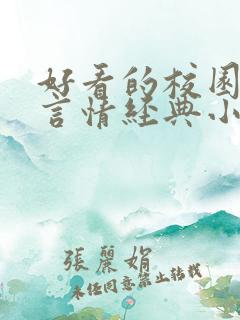 好看的校园
言情經典小
張麗娟
未经同意禁止转载